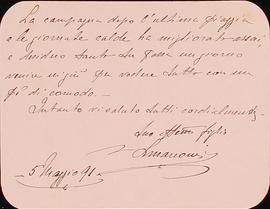 La campagna dopo l'ultima pioggia
e le giornate calde ha migliorato assai,
e desidero tanto che Ella un giorno
venire in giù per vedere tutto con un
pò di comodo. -
Intanto vi saluto tutti cordialmente,
Suo Affmo figlio
5 Maggio 91 -